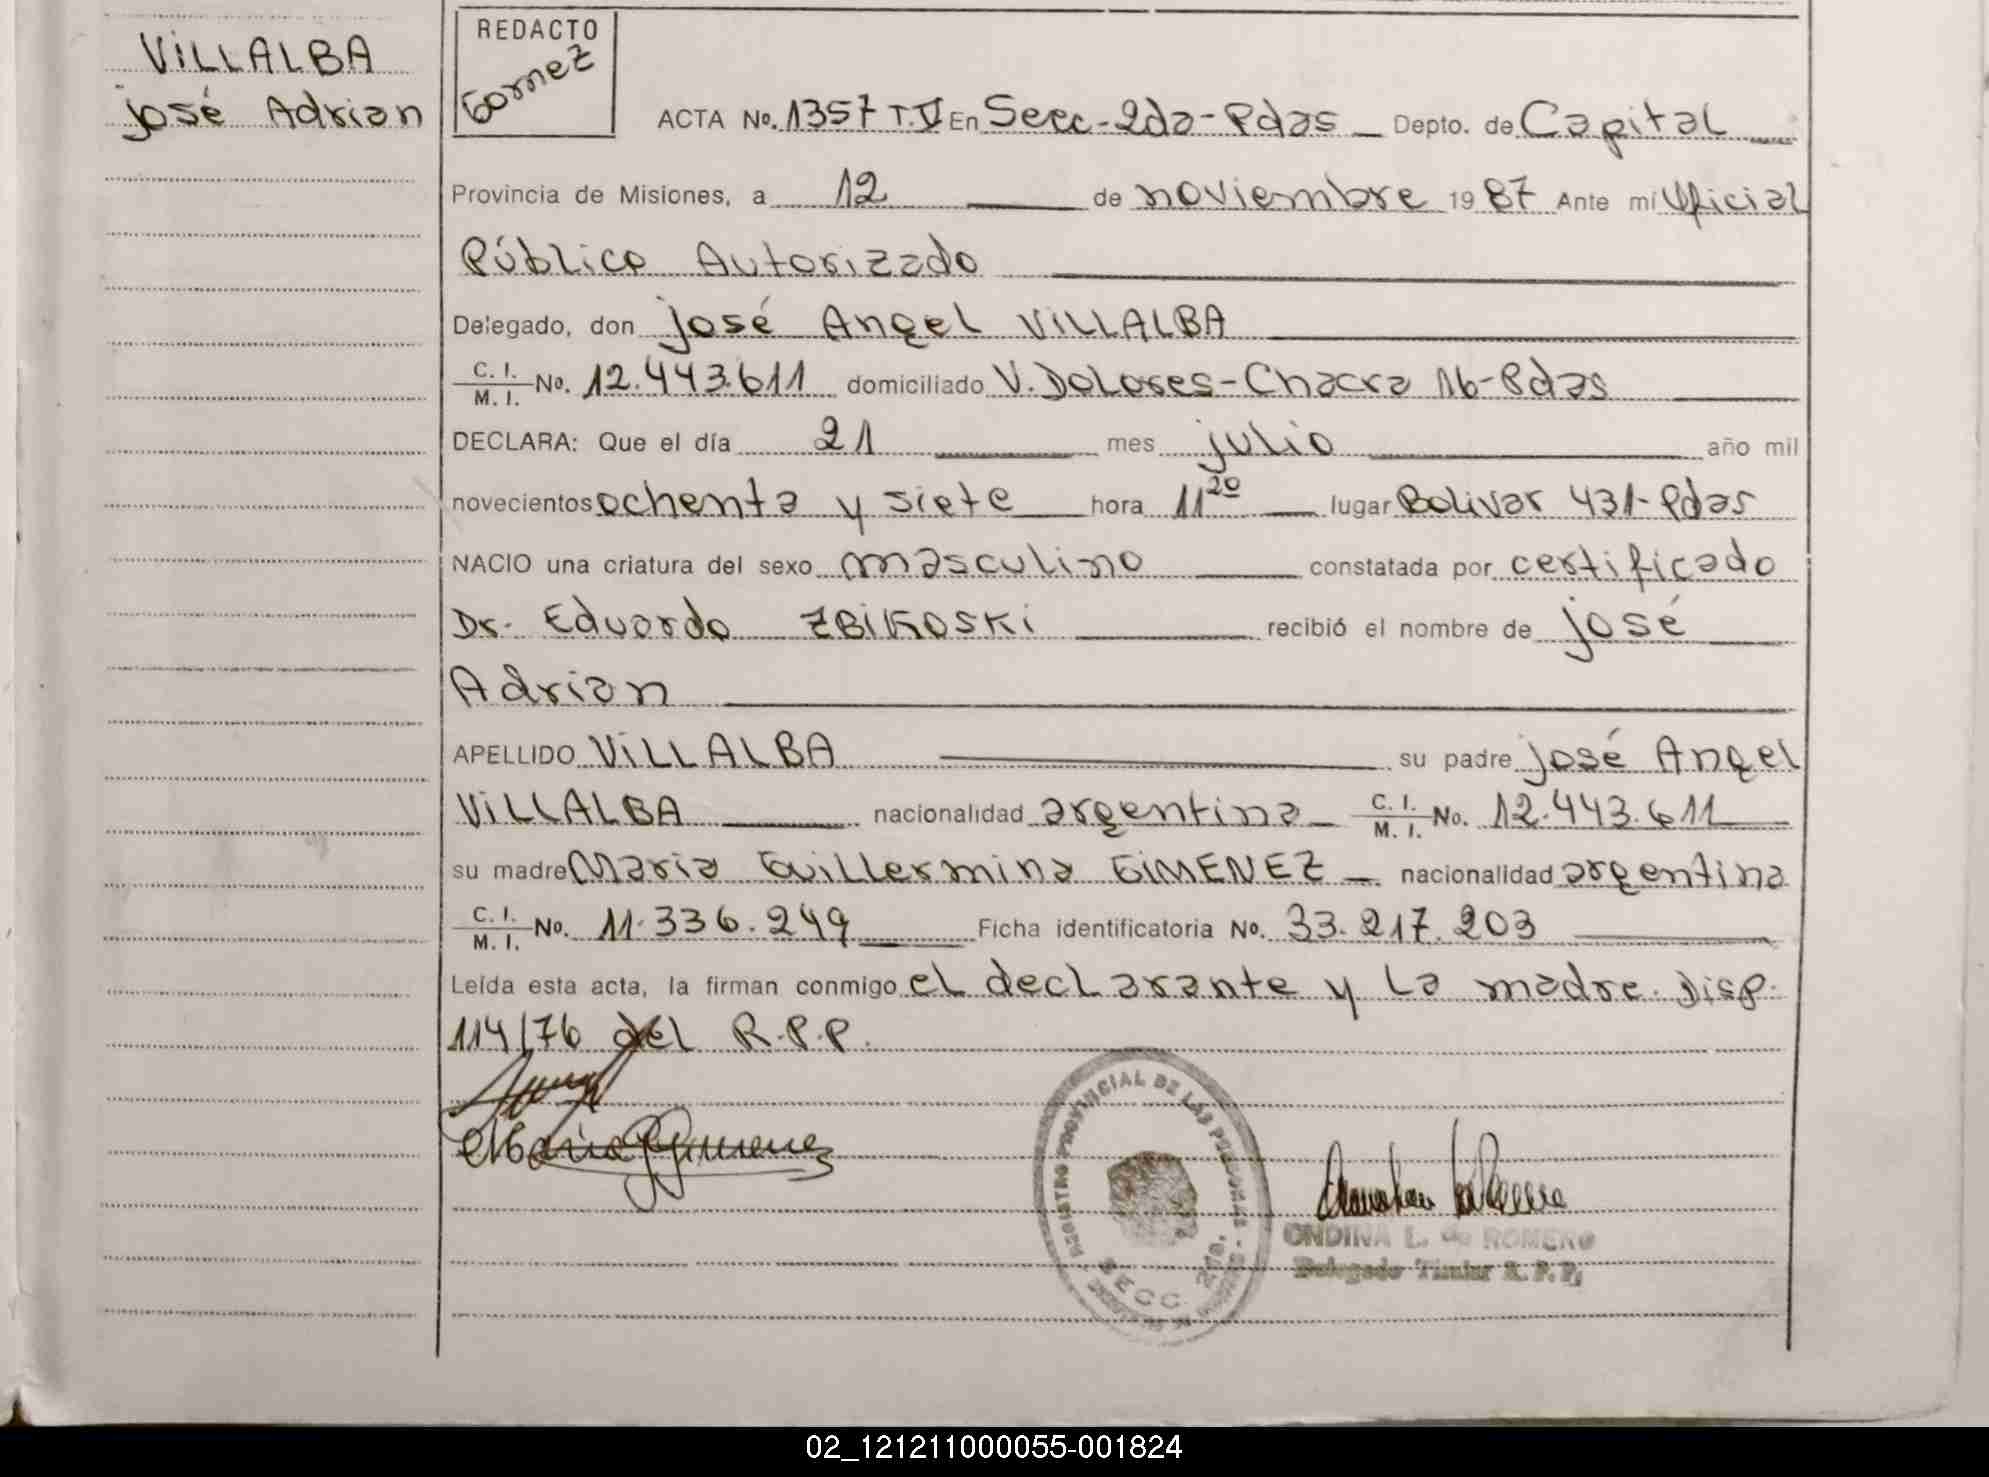 VILLALBA
José Adrian
REDACTO
Gomez
ACTA No. 1357 T.V En Secc-2da-Pdas Depto. de Capital
Provincia de Misiones, a 12 de noviembre 1987 Ante mi Oficial
Público Autorizado
Delegado, don José Angel VILLALBA
C. I. / M. I. No. 12.443.611 domiciliado V. Dolores-Chacra 16-Pdas
DECLARA: Que el día 21 mes julio año mil
novecientos ochenta y siete hora 11²⁰ lugar Bolivar 431-Pdas
NACIO una criatura del sexo masculino constatada por certificado
Dr. Eduardo ZBIKOSKI recibió el nombre de José
Adrian
APELLIDO VILLALBA su padre José Angel
VILLALBA nacionalidad argentina C. I. / M. I. No. 12.443.611
su madre Maria Guillermina GIMENEZ nacionalidad argentina
C. I. / M. I. No. 11.336.249 Ficha identificatoria No. 33.217.203
Leída esta acta, la firman conmigo el declarante y la madre. Disp.
114/76 del R.P.P.
Maria G Gimenez
REGISTRO PROVINCIAL DE LAS PERSONAS
SECC. 2da.
ONDINA L. de ROMERO
Delegado Titular R. P. P.
02_121211000055-001824